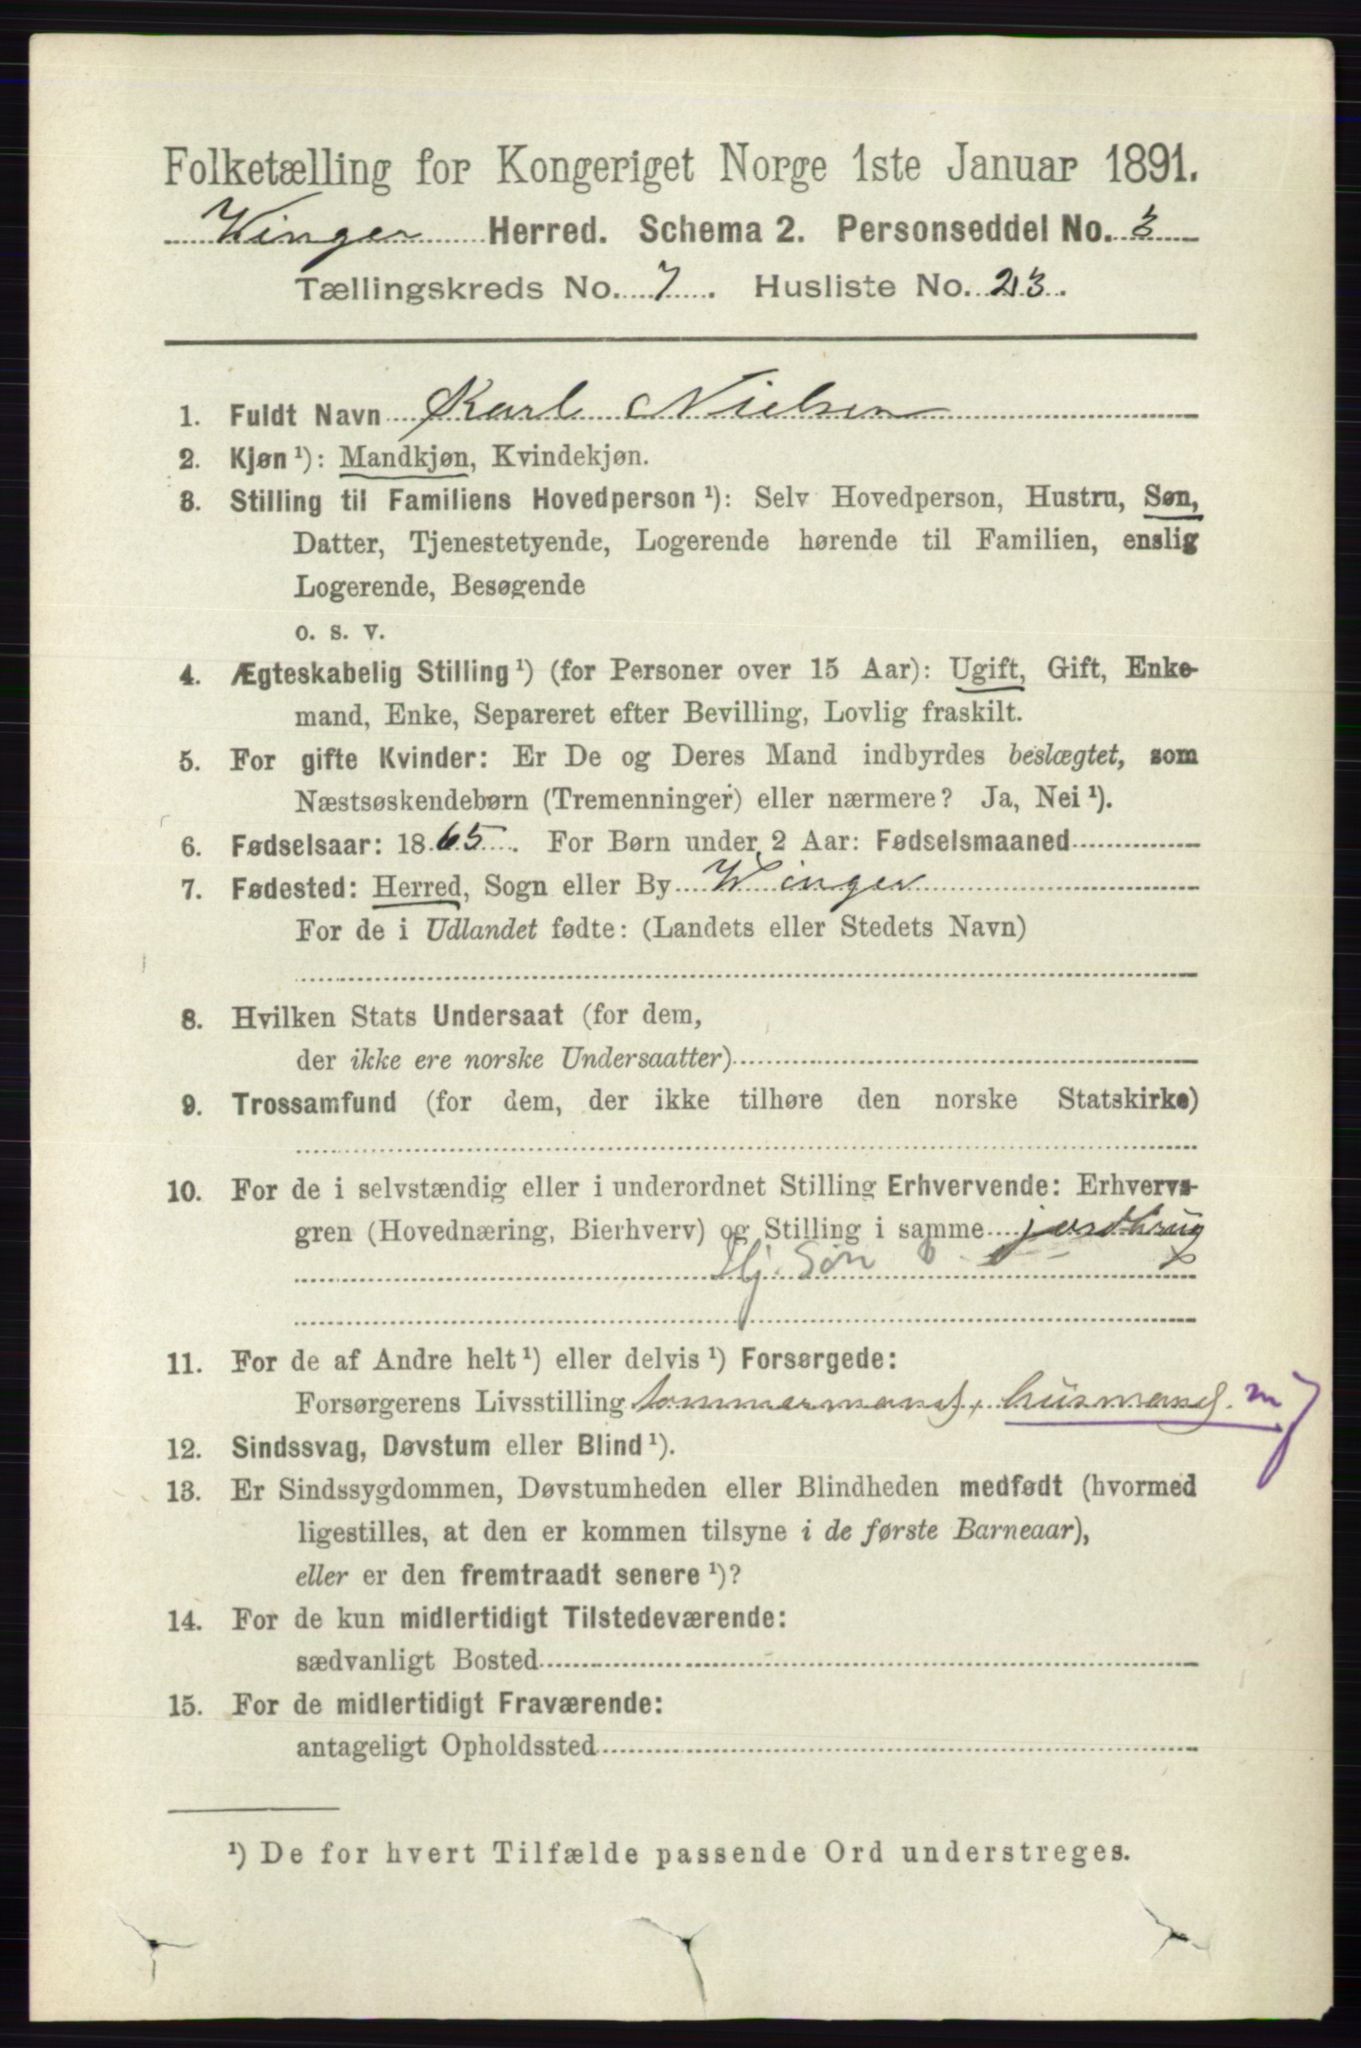 Folketælling for Kongeriget Norge 1ste Januar 1891.
Vinger Herred. Schema 2. Personseddel No. 3
Tællingskreds No. 7. Husliste No. 23.
1. Fuldt Navn Karl Nielsen
2. Kjøn ¹): Mandkjøn, Kvindekjøn.
3. Stilling til Familiens Hovedperson ¹): Selv Hovedperson, Hustru, Søn,
Datter, Tjenestetyende, Logerende hørende til Familien, enslig
Logerende, Besøgende
o. s. v.
4. Ægteskabelig Stilling ¹) (for Personer over 15 Aar): Ugift, Gift, Enke-
mand, Enke, Separeret efter Bevilling, Lovlig fraskilt.
5. For gifte Kvinder: Er De og Deres Mand indbyrdes beslægtet, som
Næstsøskendebørn (Tremenninger) eller nærmere? Ja, Nei ¹).
6. Fødselsaar: 1865. For Børn under 2 Aar: Fødselsmaaned
7. Fødested: Herred, Sogn eller By Vinger
For de i Udlandet fødte: (Landets eller Stedets Navn)
8. Hvilken Stats Undersaat (for dem,
der ikke ere norske Undersaatter)
9. Trossamfund (for dem, der ikke tilhøre den norske Statskirke)
10. For de i selvstændig eller i underordnet Stilling Erhvervende: Erhvervs-
gren (Hovednæring, Bierhverv) og Stilling i samme jordbrug
Hj. Søn
11. For de af Andre helt ¹) eller delvis ¹) Forsørgede:
Forsørgerens Livsstilling tømmermand, husmand m j
12. Sindssvag, Døvstum eller Blind ¹).
13. Er Sindssygdommen, Døvstumheden eller Blindheden medfødt (hvormed
ligestilles, at den er kommen tilsyne i de første Barneaar),
eller er den fremtraadt senere ¹)?
14. For de kun midlertidigt Tilstedeværende:
sædvanligt Bosted
15. For de midlertidigt Fraværende:
antageligt Opholdssted
¹) De for hvert Tilfælde passende Ord understreges.